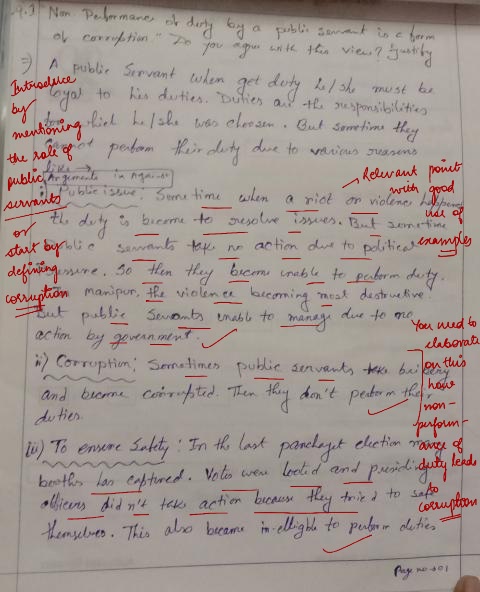 Q.3 Non-Performance of duty by a public servant is a form
of corruption." Do you agree with this view? Justify
=) A public Servant when get duty he/she must be
loyal to his duties. Duties are the responsibilities
he/she was choosen. But sometime they
perform their duty due to various reasons
like →
Arguments in Against
Introduce
by
mentioning
the role of
public
servants
or
start by
defining
corruption
i) Public issue: Sometime when a riot or violence happens
the duty is become to resolve issues. But sometime
public servants take no action due to political
pressure. So then they become unable to perform duty.
In manipur, the violence becoming most destructive.
But public Servants unable to manage due to no
action by government.
Relevant point
with good
use of
examples
ii) Corruption: Sometimes public servants take bribery
and become corrupted. Then they don't perform their
duties.
You need to
elaborate
on this
how
non-
perform-
ance of
duty leads
to
corruption
iii) To ensure Safety: In the last panchayet election many
booths has captured. Votes were looted and presiding
officers didn't take action because they tried to safe
themselves. This also became in-elligible to perform duties
Page no →01